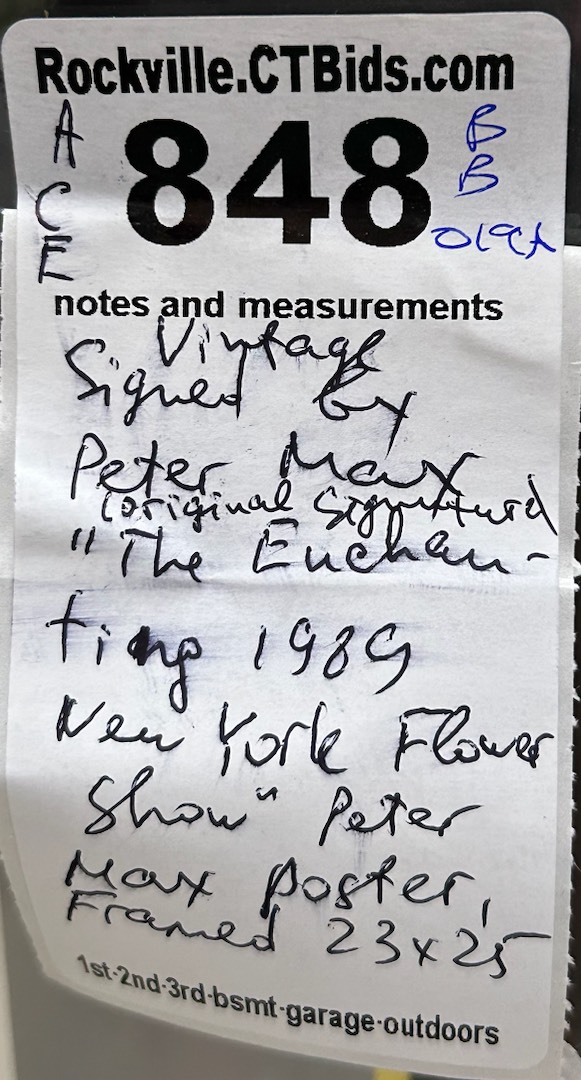 Rockville.CTBids.com
A
C
E
848
B
B
notes and measurements
Vintage
Signed by
Peter Max
(original signature)
"The Enchan-
ting 1989
New York Flower
Show" Peter
Max poster,
Framed 23x25
1st-2nd-3rd-bsmt-garage-outdoors